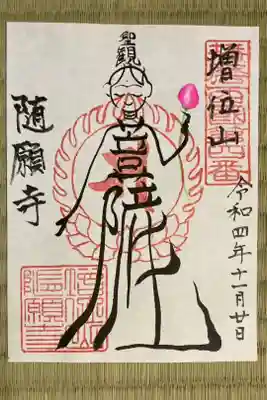 増位山
令和四年十一月廿日
聖観
菩薩
随願寺